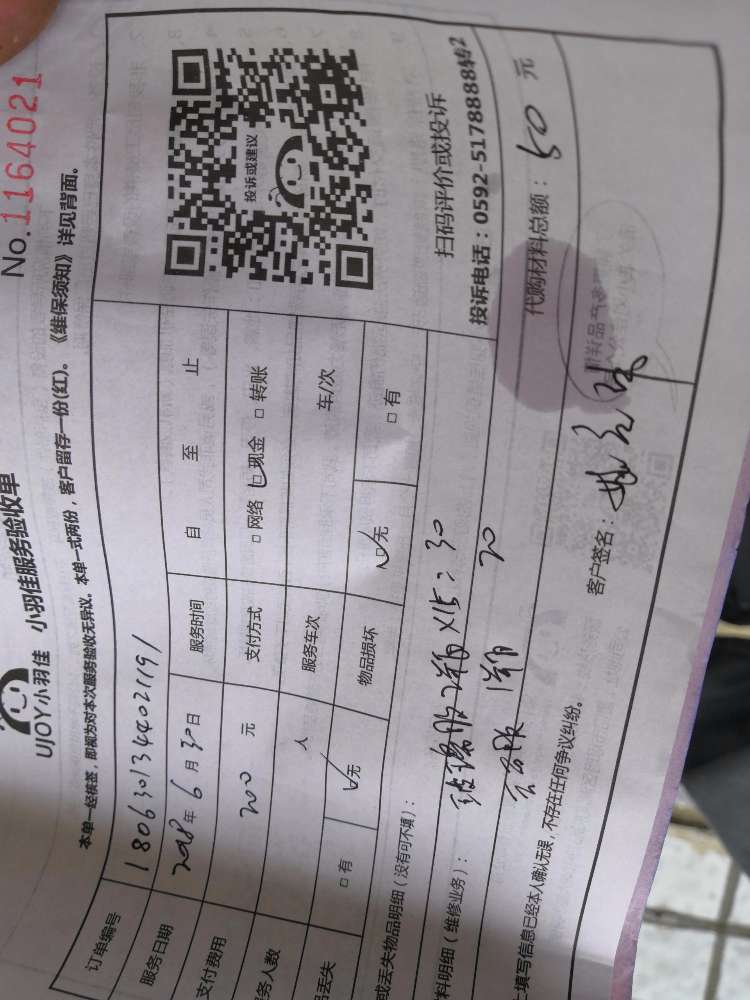 No.1164021
UJOY小羽佳 小羽佳服务验收单
本单一经核签，即视为对本次服务验收无异议。本单一式两份，客户留存一份(红)。《维保须知》详见背面。
订单编号 180630134402119
服务日期 2018年6月30日 服务时间 自 至 止
支付费用 200元 支付方式 □网络 □现金 □转账
务人数 人 服务车次 车/次
品丢失 □有 □无 物品损坏 □无 □有
投诉或建议
扫码评价或投诉
投诉电话：0592-5178888转2
或丢失物品明细（没有可不填）：
料明细（维修业务）： 玻璃胶2瓶×15=30
1瓶 20
代购材料总额：50元
填写信息已经本人确认无误，不存在任何争议纠纷。
客户签名：